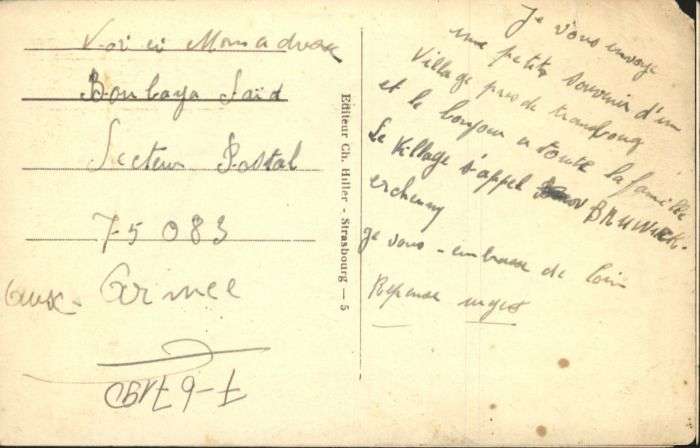 Voici Mon adresse
Boubaya Saïd
Secteur Postal
75083
aux - Armee
Editeur Ch. Hiller - Strasbourg — 5
Je vous envoye
une petite souvenir d'un
Village pres de trasboug
et le bonjour a toute la famille
Le Village s'appel BRUWICK.
erchenny
je vous - embrasse de loin
Reponse urgent